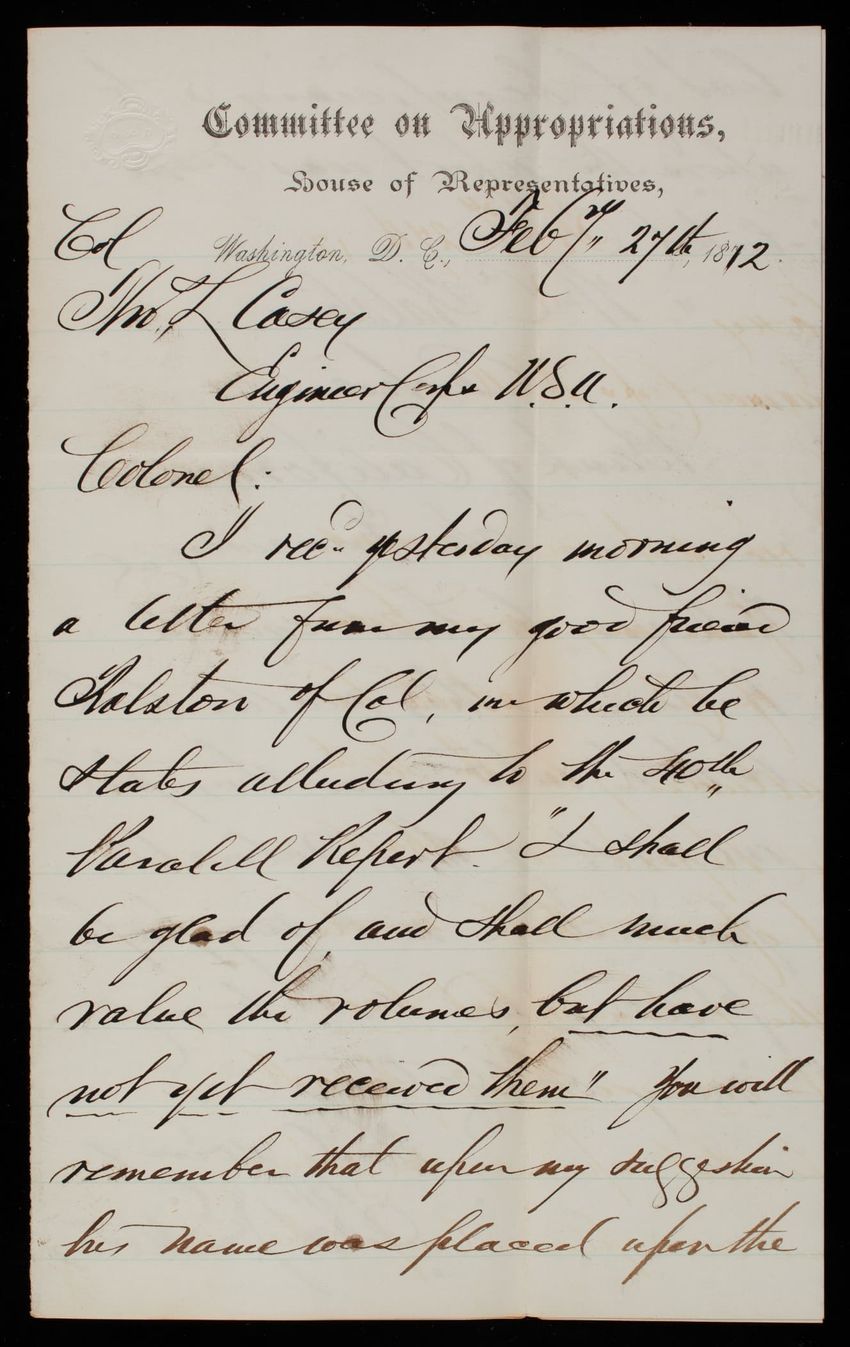 Committee on Appropriations,
House of Representatives,
Col Washington, D. C., Feby 27th, 1872.
Tho. L Casey
Engineer Corps U.S.A.
Colonel:
I recd yesterday morning
a letter from my good friend
Ralston of Cal, in which he
states alluding to the 40th
Paralell Report. "I shall
be glad of, and shall much
value the volumes, but have
not yet received them" You will
remember that upon my suggestion
his name was placed upon the